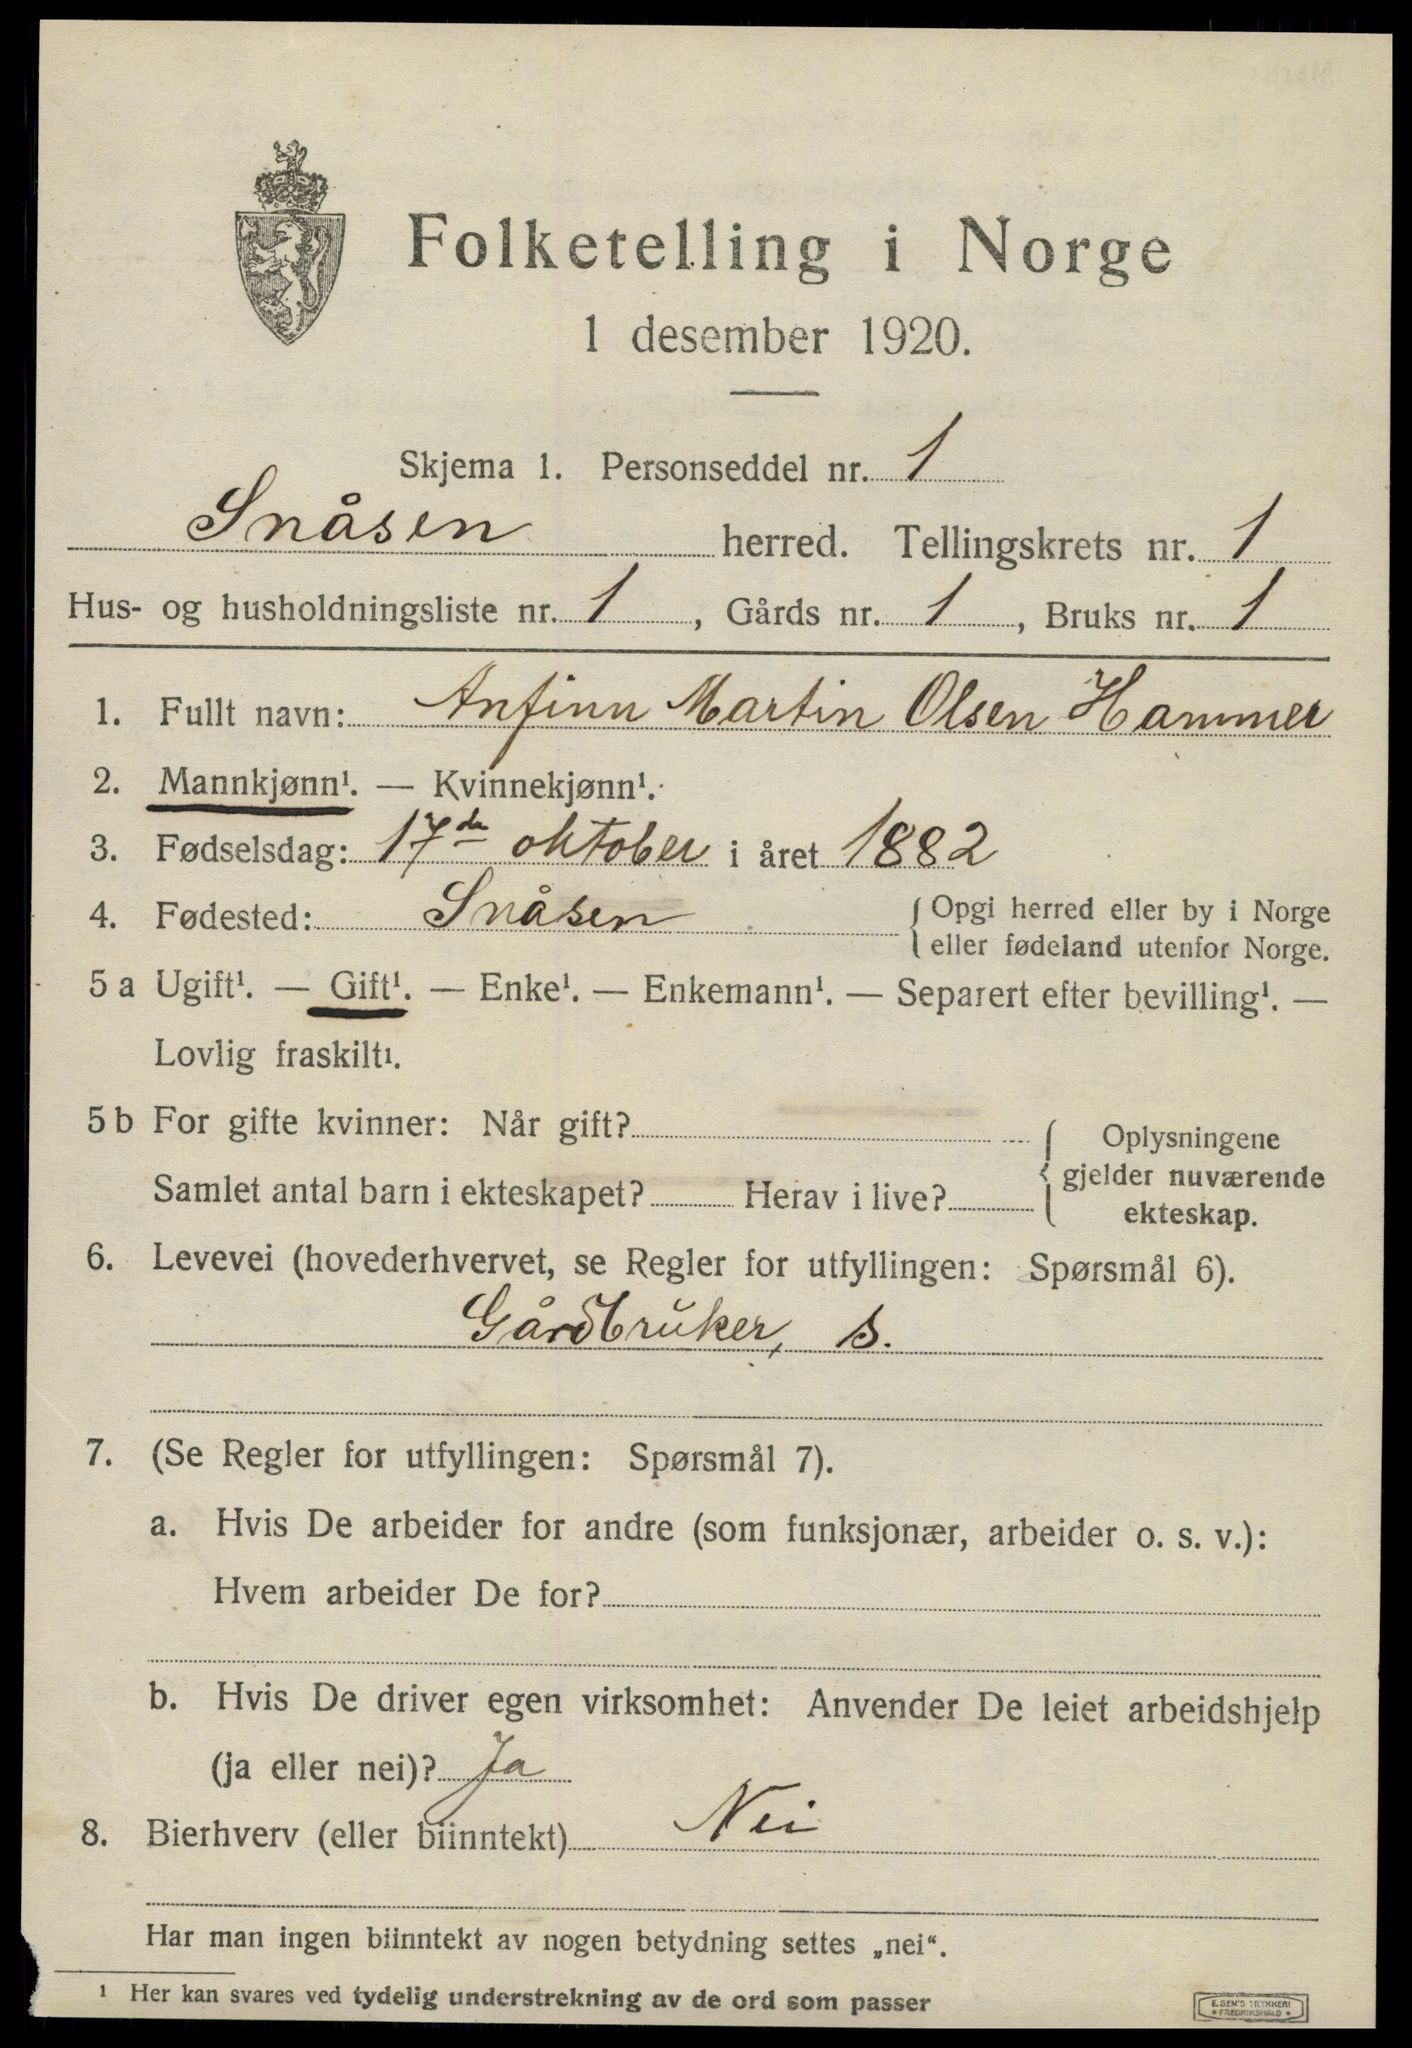 Folketelling i Norge
1 desember 1920.
Skjema 1. Personseddel nr. 1
Snåsen herred. Tellingskrets nr. 1
Hus- og husholdningsliste nr. 1, Gårds nr. 1, Bruks nr. 1
1. Fullt navn: Anfinn Martin Olsen Hammer
2. Mannkjønn¹. — Kvinnekjønn¹.
3. Fødselsdag: 17de oktober i året 1882
4. Fødested: Snåsen { Opgi herred eller by i Norge
eller fødeland utenfor Norge.
5 a Ugift¹. — Gift¹. — Enke¹. — Enkemann¹. — Separert efter bevilling¹. —
Lovlig fraskilt¹.
5 b For gifte kvinner: Når gift? { Oplysningene
gjelder nuværende
Samlet antal barn i ekteskapet? Herav i live? ekteskap.
6. Levevei (hovederhvervet, se Regler for utfyllingen: Spørsmål 6).
Gårdbruker, s.
7. (Se Regler for utfyllingen: Spørsmål 7).
a. Hvis De arbeider for andre (som funksjonær, arbeider o. s. v.):
Hvem arbeider De for?
b. Hvis De driver egen virksomhet: Anvender De leiet arbeidshjelp
(ja eller nei)? Ja
8. Bierhverv (eller biinntekt) Nei
Har man ingen biinntekt av nogen betydning settes „nei“.
¹ Her kan svares ved tydelig understrekning av de ord som passer
E. SEM'S TRYKKERI
* FREDRIKSHALD *